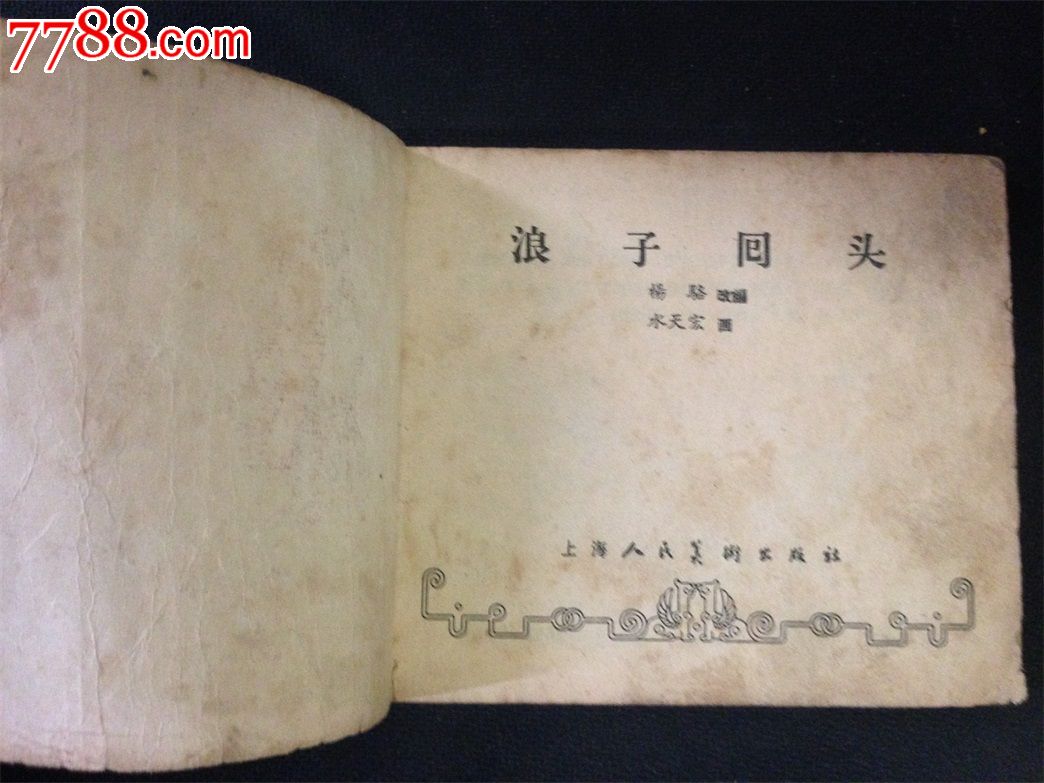 7788.com
浪子回头
楊駱改編
水天宏画
上海人民美術出版社